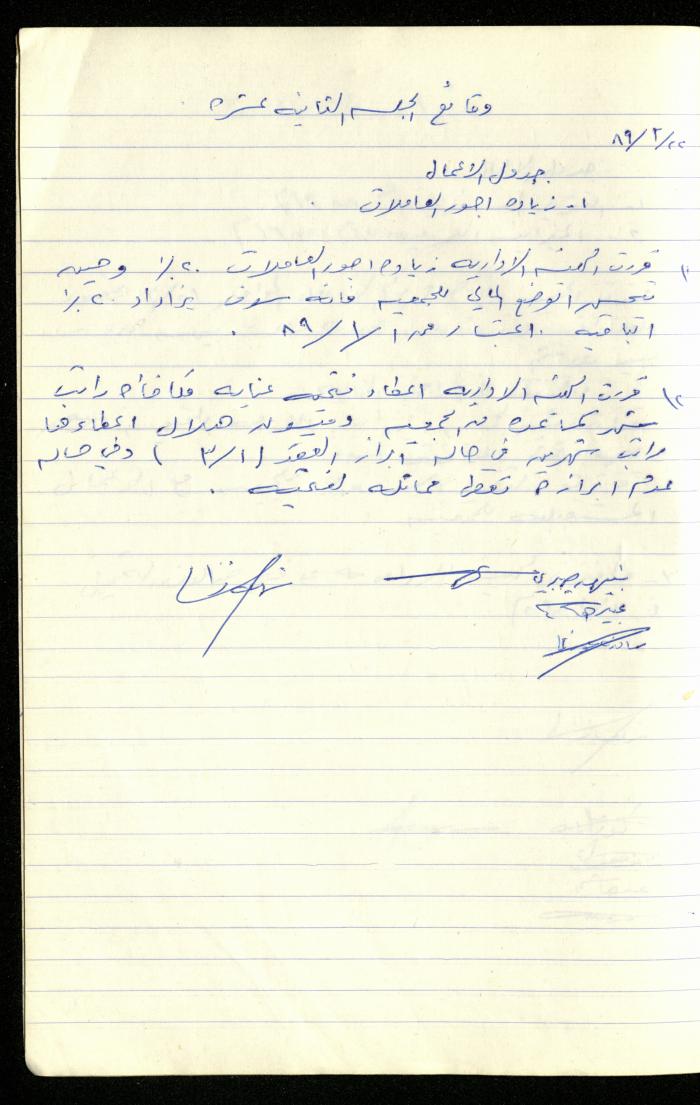 وقائع الجلسه الثانيه عشره
٨٩/٢/٢٢
جدول الاعمال
١- زيادة اجور العاملات .
١) قررت الهيئه الاداريه زيادة اجور العاملات ٢٠٪ وحين
تحسن الوضع المالي للجمعيه فانه سوف يزاد ٢٠٪
الباقيه . اعتبار من ٨٩/١/١ .
٢) قررت الهيئه الاداريه اعطاء فتحيه عنايه مكافأة راتب
شهر لمساعدة من الجمعيه وميسون هلال اعطاءها
راتب شهرين في حاله ابراز العقد ( ٣/١ ) وفي حاله
عدم ابرازه تعطى مماثله لفتحيه .
صبري
عبير